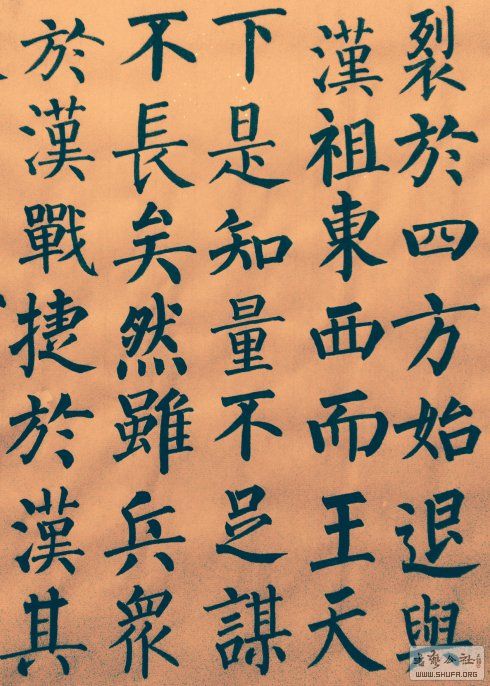 裂於四方始退與
漢祖東西而王天
下是知量不足謀
不長矣然雖兵眾
於漢戰捷於漢其
公社
WWW.SHUFA.ORG